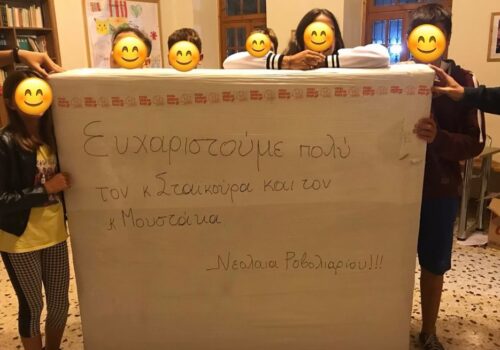 Ευχαριστούμε πολύ
τον κ Σταϊκούρα και τον
κ Μουστάκα
Νεολαια Ροβολιαρίου!!!